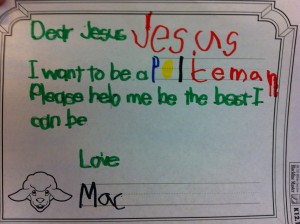 Dear Jesus Jesus
I want to be a policeman
Please help me be the best I
can be
Love
Mac